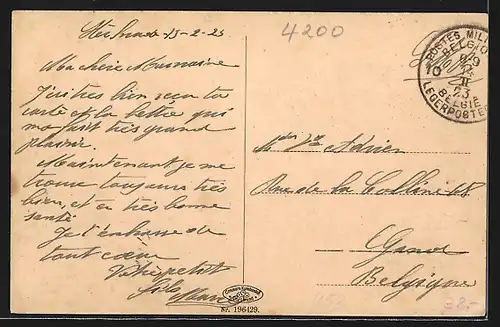 15-2-23
Ma chère Marraine
J'ai très bien reçu ta
carte et la lettre qui
m'a fait très grand
plaisir.
Maintenant je me
trouve toujours très
bien, et en très bonne
santé
Je t'embrasse de
tout cœur
Votre petit
fils
4200
POSTES MILIT
BELGIQUE
10
II
23
BELGIË
LEGERPOSTERIJ
Adrien
Rue de la Colline 18
Gand
Belgique
Nr. 196429.